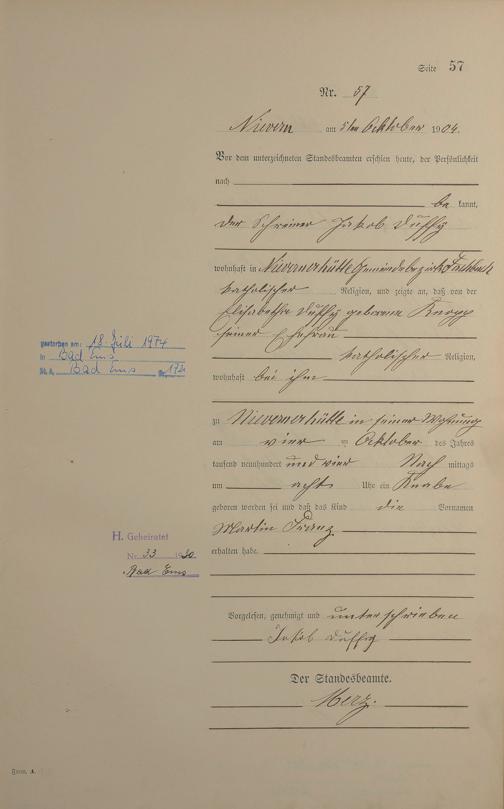 Seite 57
Nr. 57
Nievern am 5ten Oktober 1904.
Vor dem unterzeichneten Standesbeamten erschien heute, der Persönlichkeit
nach
be kannt,
der Schreiner Jakob Duffy
wohnhaft in Nievernerhütte Gemeindebezirk Fachbach
katholischer Religion, und zeigte an, daß von der
Elisabetha Duffy geborene Knopp
seiner Ehefrau
katholischer Religion,
wohnhaft bei ihm
zu Nievernerhütte in seiner Wohnung
am vier ten Oktober des Jahres
tausend neunhundert und vier Nach mittags
um acht Uhr ein Knabe
geboren worden sei und daß das Kind die Vornamen
Martin Franz
erhalten habe.
Vorgelesen, genehmigt und unterschrieben
Jakob Duffy
Der Standesbeamte.
Merz.
gestorben am: 18 Juli 1974
in Bad Ems
St. A. Bad Ems Nr. 172
H. Geheiratet
Nr. 33 1930
Bad Ems
Form. A.